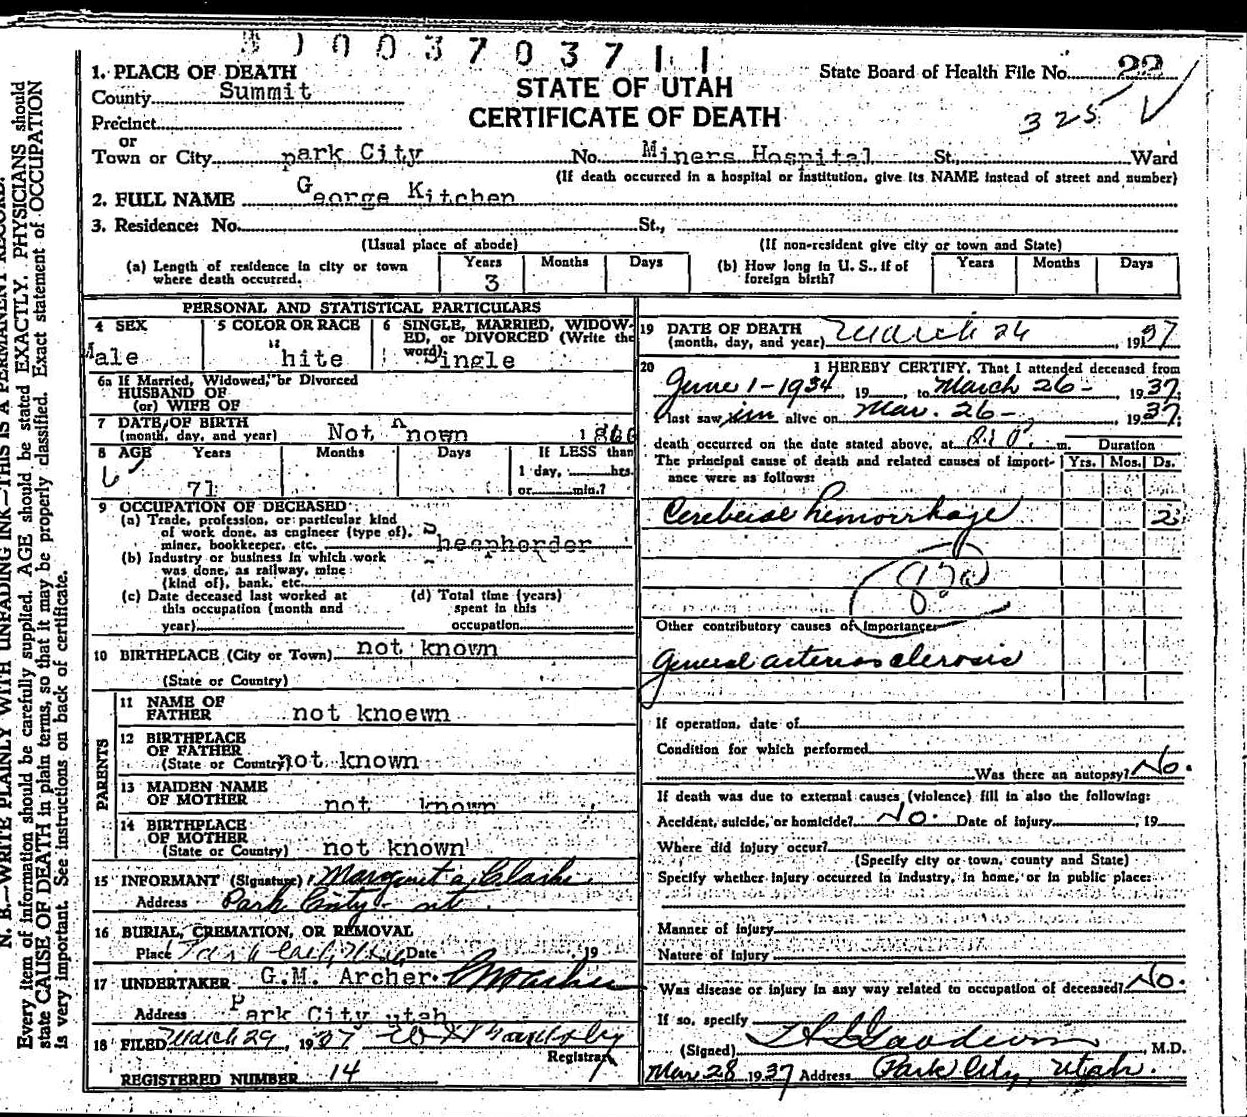 3 1 0 0 3 7 0 3 7 1 1
1. PLACE OF DEATH
County Summit
Precinct
or
Town or City park City No. Miners Hospital St., Ward
STATE OF UTAH
CERTIFICATE OF DEATH
State Board of Health File No. 22
325
(If death occurred in a hospital or institution, give its NAME instead of street and number)
2. FULL NAME George Kitchen
3. Residence: No. St.,
(Usual place of abode) (If non-resident give city or town and State)
(a) Length of residence in city or town where death occurred. Years 3 Months Days
(b) How long in U. S., if of foreign birth? Years Months Days
PERSONAL AND STATISTICAL PARTICULARS
4 SEX Male
5 COLOR OR RACE white
6 SINGLE, MARRIED, WIDOWED, or DIVORCED (Write the word) Single
6a If Married, Widowed, or Divorced
HUSBAND OF
(or) WIFE OF
7 DATE OF BIRTH
(month, day, and year) Not Known 1866
8 AGE Years 71 Months Days If LESS than
1 day, hrs.
or min.?
9 OCCUPATION OF DECEASED
(a) Trade, profession, or particular kind
of work done, as engineer (type of),
miner, bookkeeper, etc. Sheepherder
(b) Industry or business in which work
was done, as railway, mine
(kind of), bank, etc.
(c) Date deceased last worked at
this occupation (month and
year)
(d) Total time (years)
spent in this
occupation
10 BIRTHPLACE (City or Town) not known
(State or Country)
PARENTS
11 NAME OF
FATHER not knoewn
12 BIRTHPLACE
OF FATHER
(State or Country) not known
13 MAIDEN NAME
OF MOTHER not known
14 BIRTHPLACE
OF MOTHER
(State or Country) not known
15 INFORMANT (Signature) Margaret A. Clark
Address Park City
16 BURIAL, CREMATION, OR REMOVAL
Place Park City, Utah Date 19
17 UNDERTAKER G.M. Archer
Address Park City utah
18 FILED March 29, 1937
Registrar
REGISTERED NUMBER 14
19 DATE OF DEATH
(month, day, and year) March 26, 1937
20 I HEREBY CERTIFY, That I attended deceased from
June 1 - 1934, 19 to March 26 - 1937
last saw im alive on Mar. 26 - 1937
death occurred on the date stated above, at P. m. Duration
The principal cause of death and related causes of importance were as follows: Yrs. Mos. Ds.
Cerebral hemorrhage 2
Other contributory causes of importance:
General arteriosclerosis
If operation, date of
Condition for which performed
Was there an autopsy? No.
If death was due to external causes (violence) fill in also the following:
Accident, suicide, or homicide? No. Date of injury , 19
Where did injury occur?
(Specify city or town, county and State)
Specify whether injury occurred in industry, in home, or in public place:
Manner of injury
Nature of injury
Was disease or injury in any way related to occupation of deceased? No.
If so, specify
(Signed) , M.D.
Mar 28 1937 Address Park City, Utah.
N. B.—WRITE PLAINLY WITH UNFADING INK—THIS IS A PERMANENT RECORD.
Every item of information should be carefully supplied. AGE should be stated EXACTLY. PHYSICIANS should
state CAUSE OF DEATH in plain terms, so that it may be properly classified. Exact statement of OCCUPATION
is very important. See instructions on back of certificate.